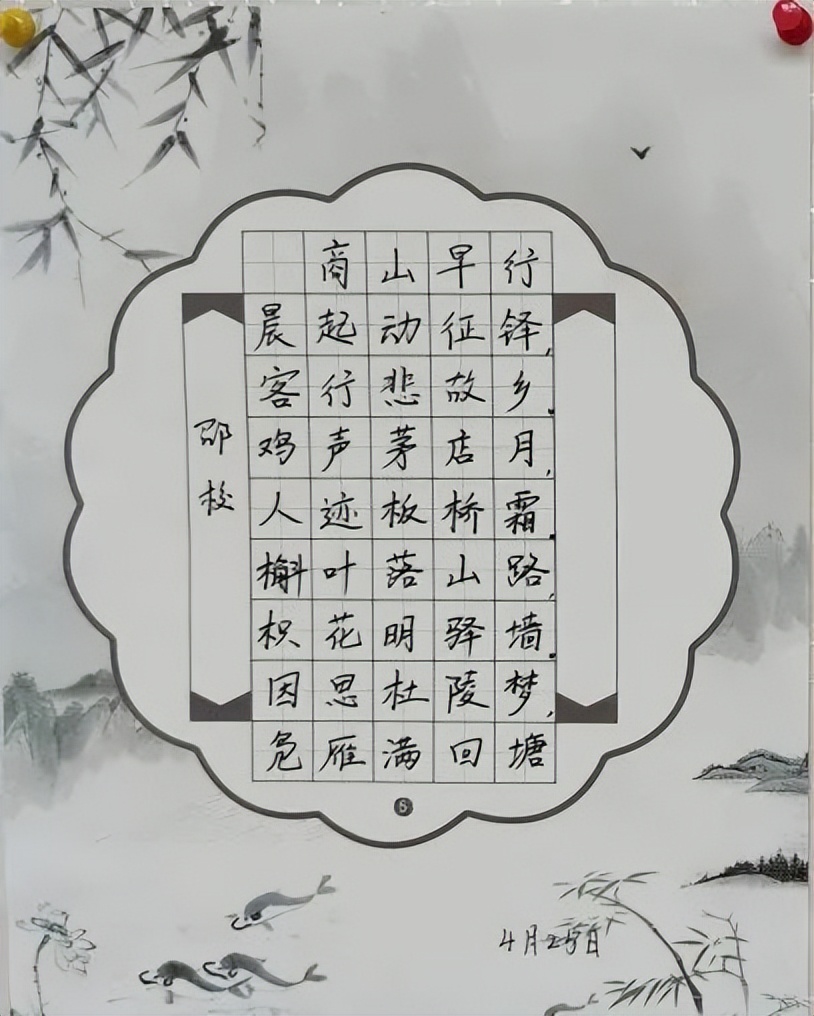 商山早行
晨起动征铎,
客行悲故乡.
鸡声茅店月,
人迹板桥霜.
槲叶落山路,
枳花明驿墙.
因思杜陵梦,
凫雁满回塘
邵校
4月25日